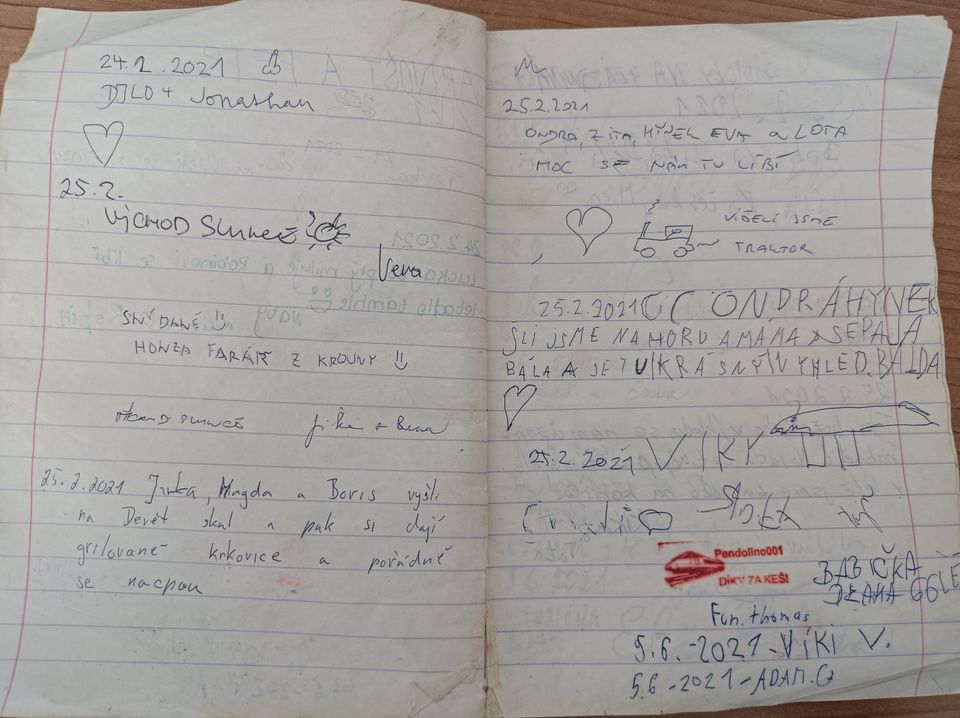 24.2.2021
DILO + Jonathan
25.2.
VÝCHOD SLUNCE
Verča
SNÍDANĚ
HONZA FARÁŘ Z KROUNY
25.2.2021 Jirka, Magda a Boris vyšli
na Devět skal a pak si dají
grilované krkovice a pořádně
se nacpou
25.2.2021
ONDRA, ZITA, HYNEK EVA a LOTA
MOC SE NÁM TU LÍBÍ
VIDĚLI JSME
TRAKTOR
25.2.2021 ONDRÁHYNEK
ŠLI JSME NAHORU AMAMA SEPAJA
BÁLA A JETU KRÁSNÝ VYHLED.
25.2.2021 VIKY
Pendolino001
DÍKY ZA KEŠI
BABIČKA
Fun.thomas
5.6.-2021-VIKI V.
5.6-2021-ADAM.